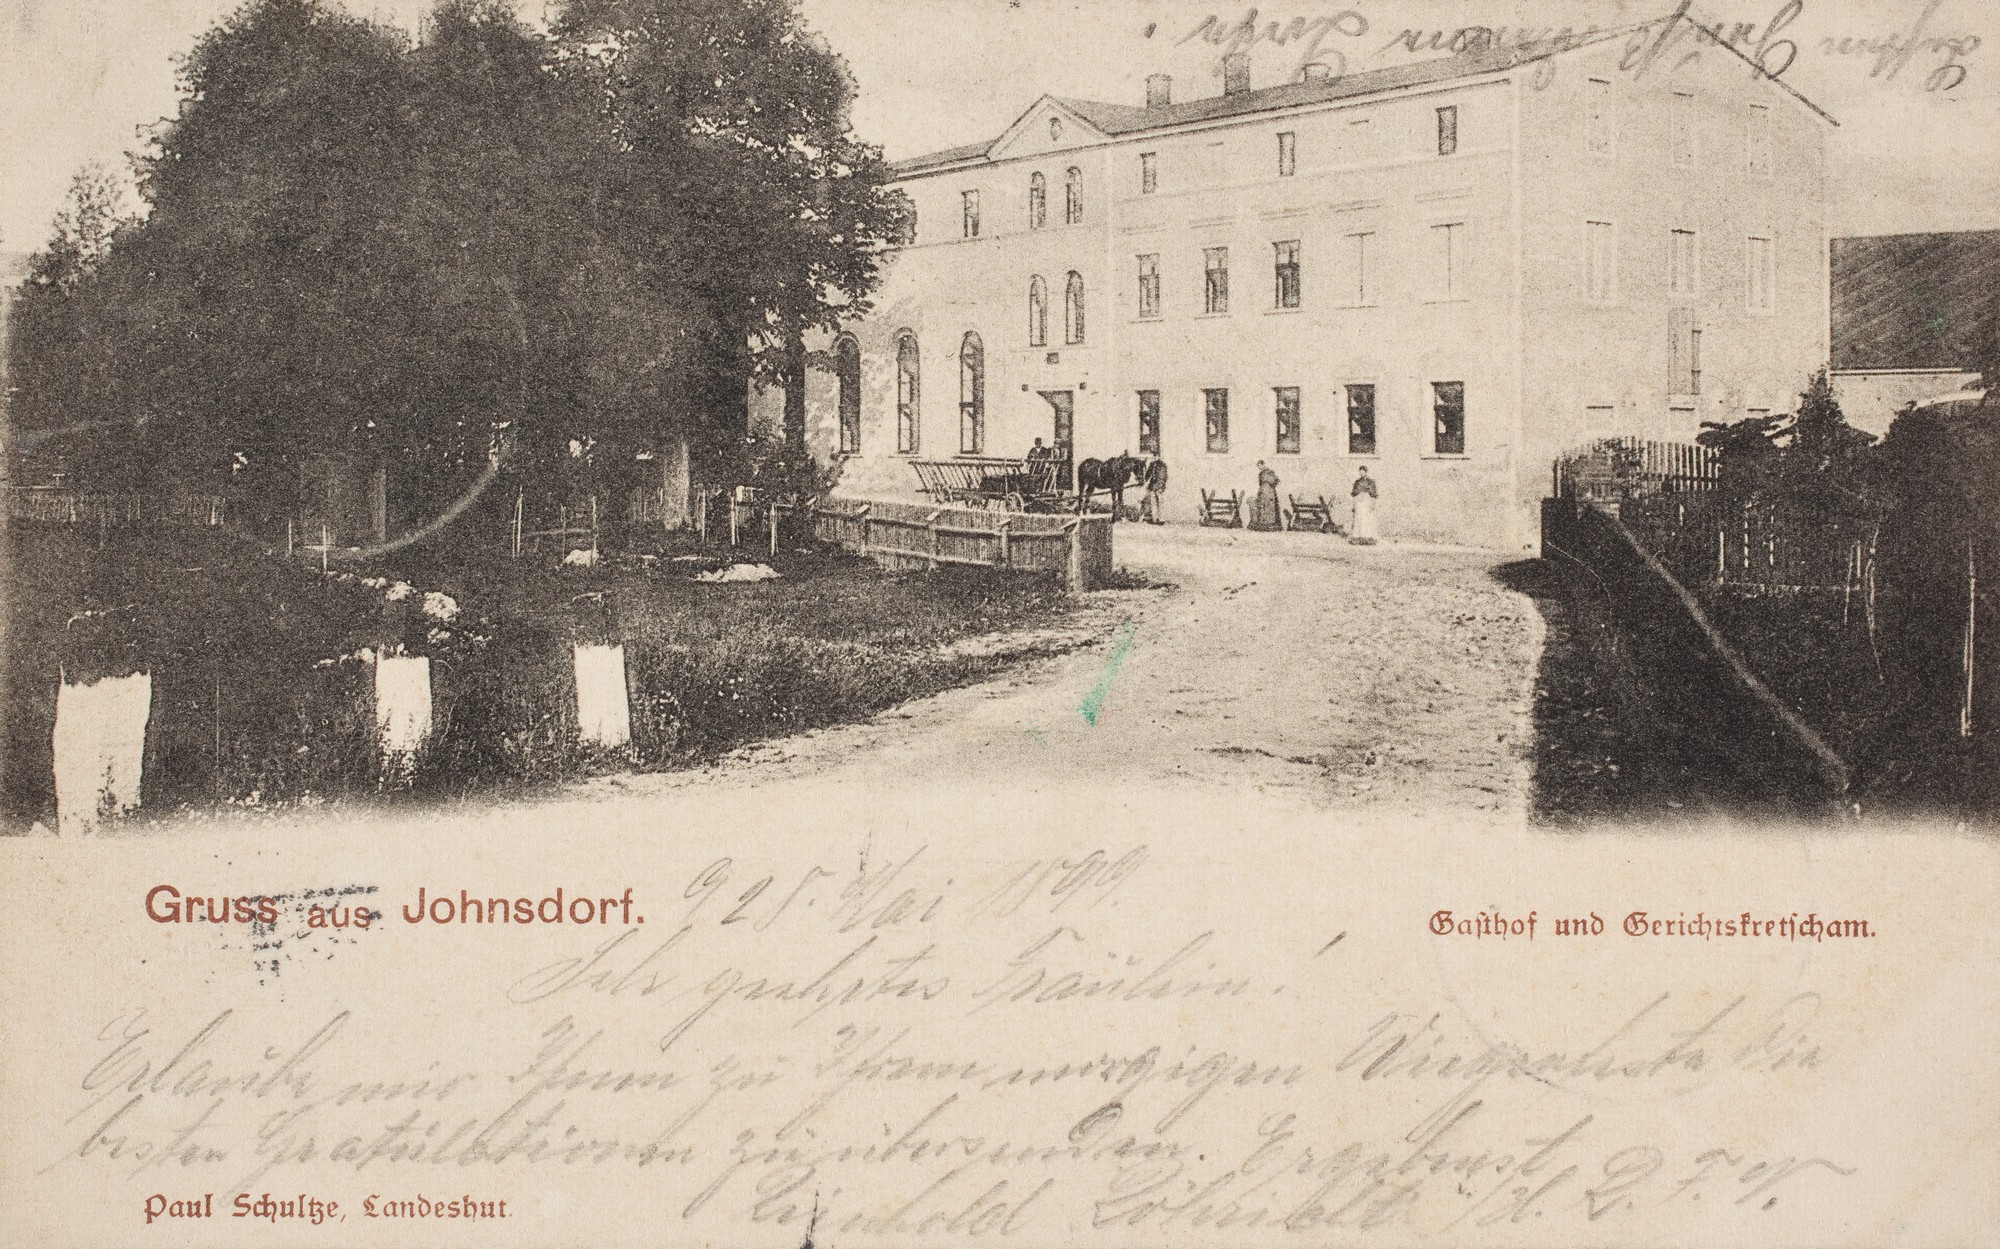 Gruss aus Johnsdorf.
28. Mai 1899.
Gasthof und Gerichtskretscham.
Sehr geehrtes Fräulein!
Erlaube mir Ihnen zu Ihrem morgigen Wiegenfeste die
besten Gratulationen zu übersenden. Ergebenst
Reinhold
Paul Schultze, Landeshut.